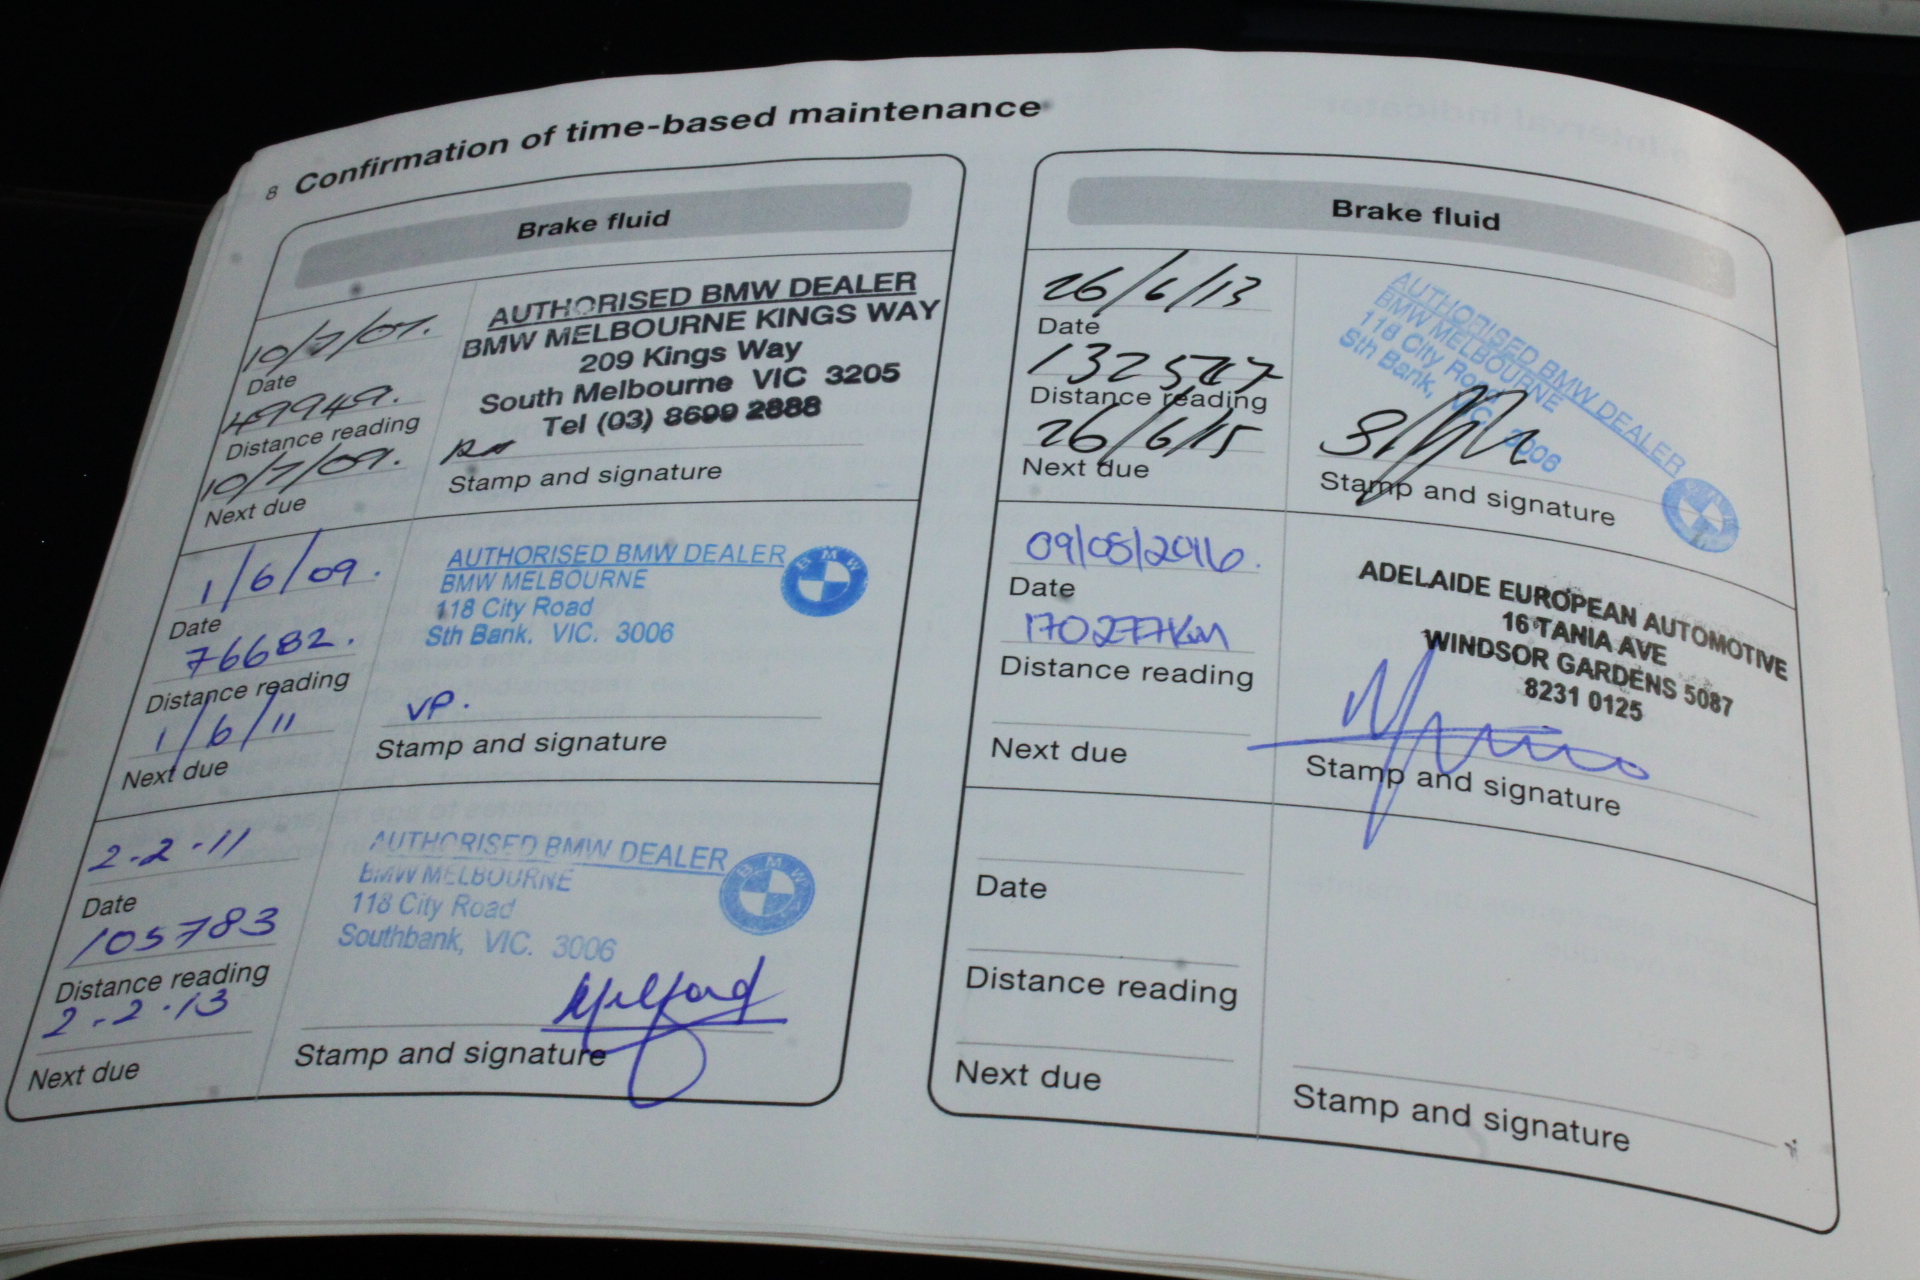 8 Confirmation of time-based maintenance
Brake fluid
10/7/07.
Date
49949.
Distance reading
10/7/09.
Next due
AUTHORISED BMW DEALER
BMW MELBOURNE KINGS WAY
209 Kings Way
South Melbourne VIC 3205
Tel (03) 8699 2888
Stamp and signature
1/6/09.
Date
76682.
Distance reading
1/6/11
Next due
AUTHORISED BMW DEALER
BMW MELBOURNE
118 City Road
Sth Bank. VIC. 3006
VP.
Stamp and signature
2-2-11
Date
105783
Distance reading
2-2-13
Next due
AUTHORISED BMW DEALER
BMW MELBOURNE
118 City Road
Southbank, VIC. 3006
Stamp and signature
Brake fluid
26/6/13
Date
132547
Distance reading
26/6/15
Next due
AUTHORISED BMW DEALER
BMW MELBOURNE
118 City Road
Sth Bank, VIC 3006
Stamp and signature
09/05/2016.
Date
170277km
Distance reading
Next due
ADELAIDE EUROPEAN AUTOMOTIVE
16 TANIA AVE
WINDSOR GARDENS 5087
8231 0125
Stamp and signature
Date
Distance reading
Next due
Stamp and signature